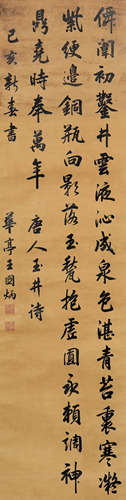 僊闈初鑿井雲液沁成泉色湛青苔裏寒凝
紫綆邊銅瓶向影落玉甃抱虛圓永賴調神
鼎堯時奉萬年 唐人玉井詩
己亥新春書 華亭王圖炳